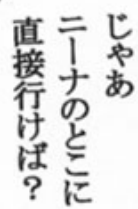 じゃあ
ニーナのとこに
直接行けば？